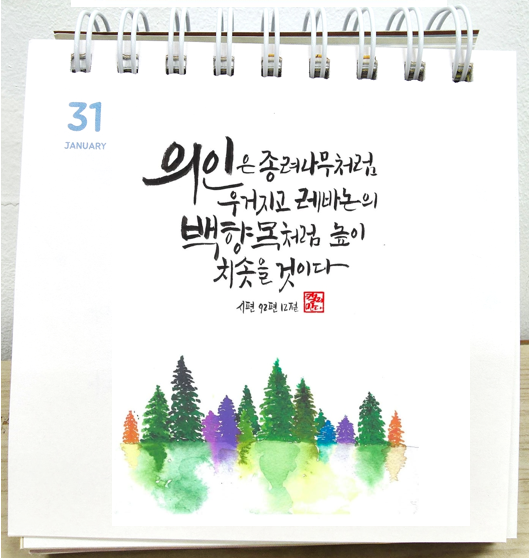 31
JANUARY
의인은 종려나무처럼
우거지고 레바논의
백향목처럼 높이
치솟을 것이다
시편 92편 12절